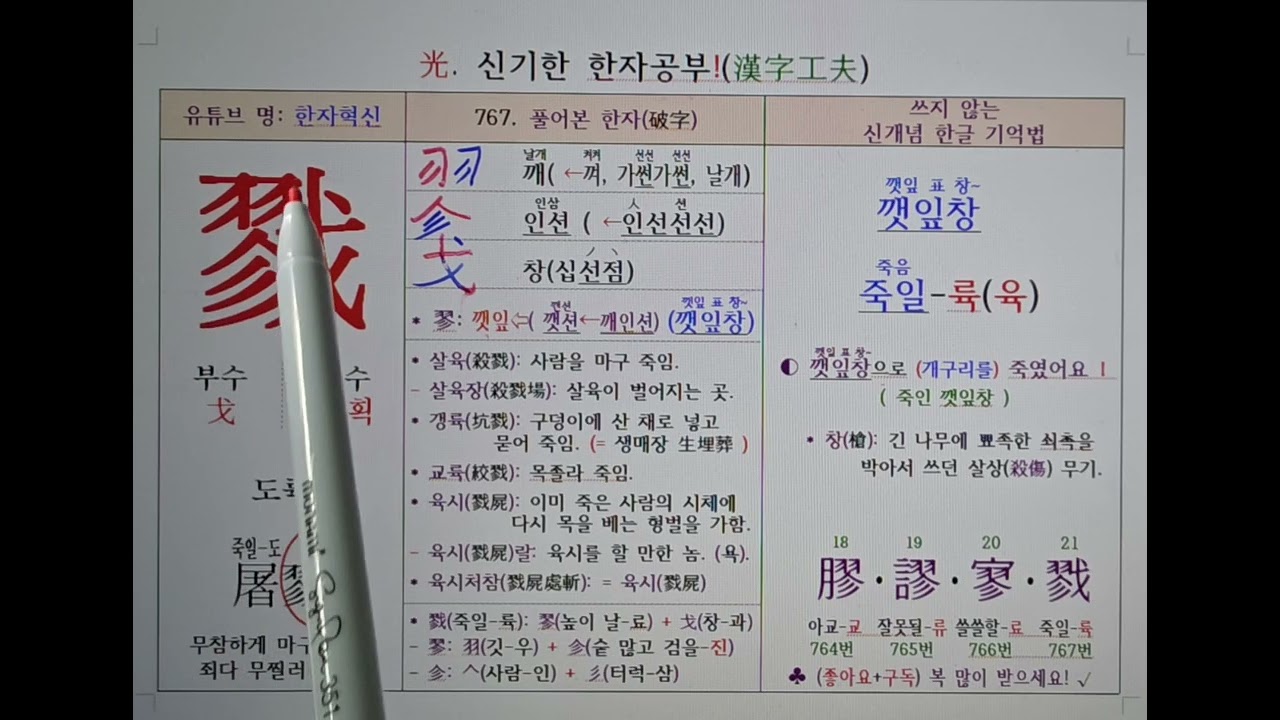 光. 신기한 한자공부!(漢字工夫)
유튜브 명: 한자혁신
767. 풀어본 한자(破字)
쓰지 않는
신개념 한글 기억법
戮
부수
수
戈
획
죽일-도
屠
무참하게 마구
죄다 무찔러
羽
날개 켜켜 선선 선선
깨( ←껴, 가썬가썬, 날개)
㐱
인삼 人 션
인션 ( ←인선선선)
戈
창(십선점)
깬션 깻잎 표 창~
* 翏: 깻잎⇦( 깻션←깨인션) (깻잎창)
* 살육(殺戮): 사람을 마구 죽임.
- 살육장(殺戮場): 살육이 벌어지는 곳.
* 갱륙(坑戮): 구덩이에 산 채로 넣고
묻어 죽임. (= 생매장 生埋葬 )
* 교륙(絞戮): 목졸라 죽임.
* 육시(戮屍): 이미 죽은 사람의 시체에
다시 목을 베는 형벌을 가함.
- 육시(戮屍)랄: 육시를 할 만한 놈. (욕).
* 육시처참(戮屍處斬): = 육시(戮屍)
* 戮(죽일-륙): 翏(높이 날-료) + 戈(창-과)
- 翏: 羽(깃-우) + 㐱(숱 많고 검을-진)
- 㐱: 𠆢(사람-인) + 彡(터럭-삼)
깻잎 표 창~
깻잎창
죽음
죽일-륙(육)
깻잎 표 창~
◐ 깻잎창으로 (개구리를) 죽였어요 !
( 죽인 깻잎창 )
* 창(槍): 긴 나무에 뾰족한 쇠촉을
박아서 쓰던 살상(殺傷) 무기.
18 19 20 21
膠·謬·寥·戮
아교-교 잘못될-류 쓸쓸할-료 죽일-륙
764번 765번 766번 767번
♣ (좋아요+구독) 복 많이 받으세요! √